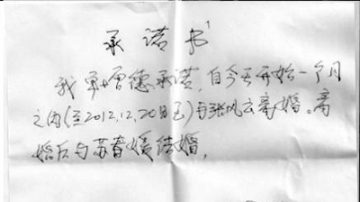 承诺书
我单增德承诺,自今天开始一个月
之内(至2012.12.20日已)与张风云离婚。离
婚后与苏春媛结婚,